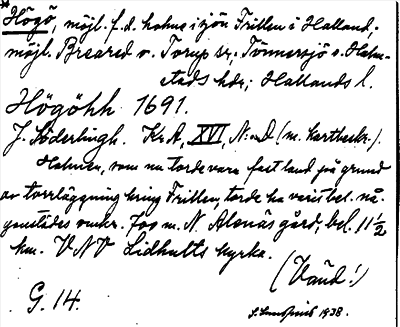 *Högö, möjl. f.d. holme i sjön Frillen i Halland;
möjl. Breared o. Torup sr; Tönnersjö o. Halm-
stads hdr; Hallands l.
Högöhh 1691.
J. Söderlingh. KrA, XVI, N:o (m. kartbeskr.).
Holmen, som nu torde vara fast land på grund
av torrläggning kring Frillen, torde ha varit bel. nå-
gonstädes omkr. 700 m. N Alenäs gård, bel. 11 1/2
km. VNV Lidhults kyrka.
(Vänd!)
G. 14.
1938.